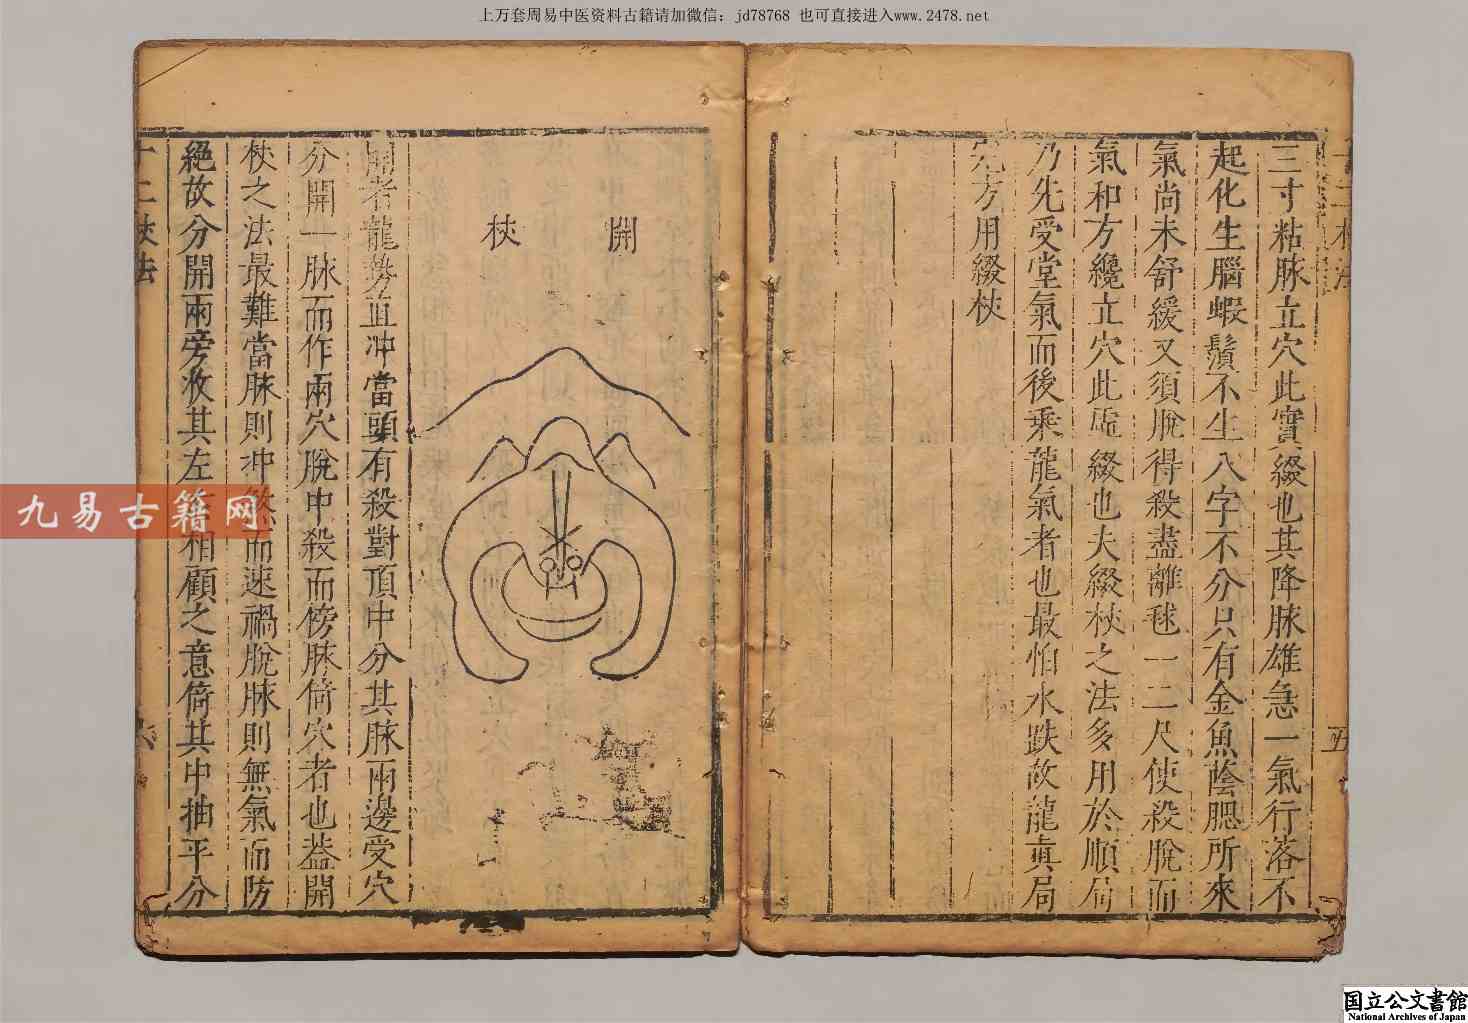 上万套周易中医资料古籍请加微信：jd78768 也可直接进入www.2478.net
三寸粘脉立穴此實綴也其降脉雄急一氣行落不
起化生腦蝦鬚不生八字不分只有金魚蔭腮所來
氣尚未舒緩又須脫得殺盡離毬一二尺使殺脫而
氣和方纔立穴此虛綴也夫綴杖之法多用於順局
乃先受堂氣而後乘龍氣者也最怕水跌故龍真局
完方用綴杖
五
開杖
開者龍勢直冲當頭有殺對頂中分其脉兩邊受穴
分開一脉而作兩穴脫中殺而傍脉倚穴者也葢開
杖之法最難當脉則冲煞而速禍脫脉則無氣而防
絶故分開兩旁收其左相顧之意倚其中抽平分
十二杖法
六
九易古籍网
国立公文書館
National Archives of Japan